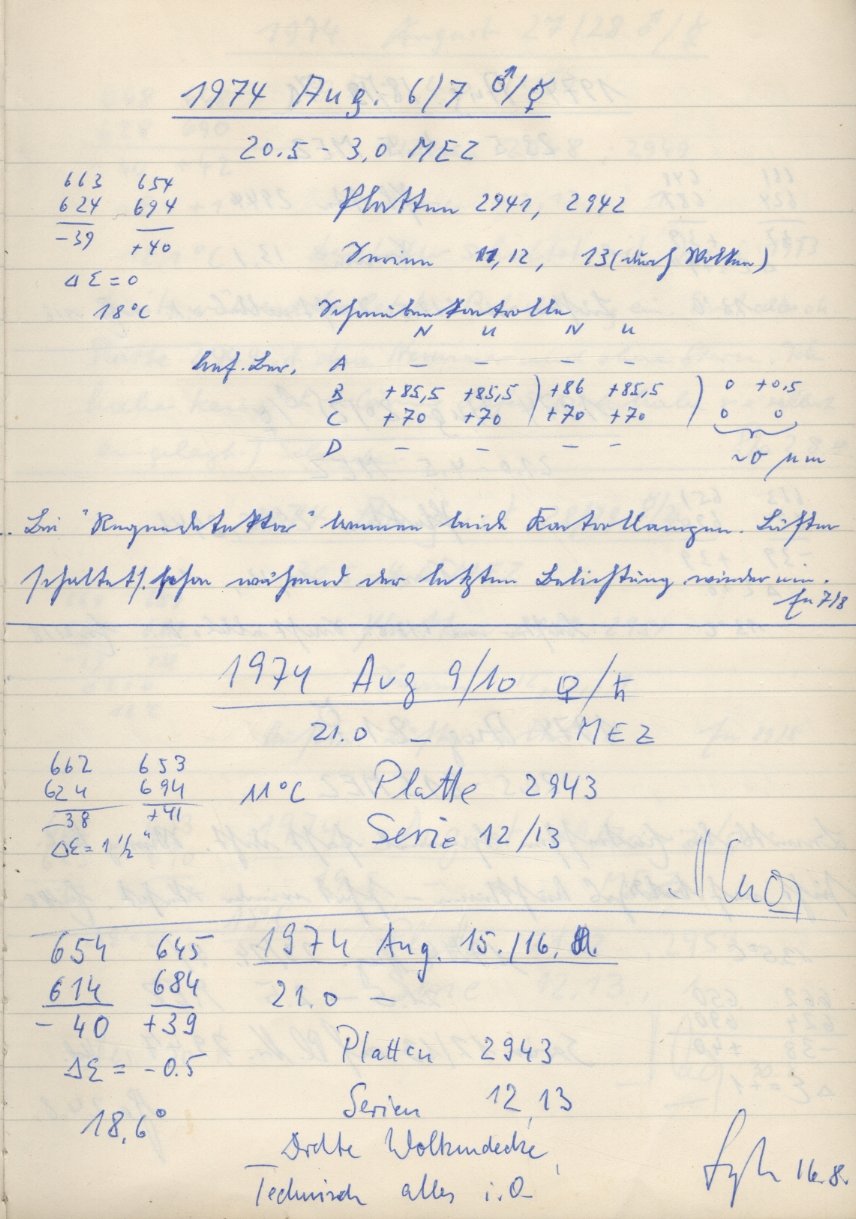 1974 Aug. 6/7 ♂/☿
20.5 - 3.0 MEZ
663 654
624 694 Platten 2941, 2942
-39 +40
Serien 11, 12, 13 (durch Wolken)
Δε = 0
18°C Schraubenkontrolle
N U N U
A – – – –
B +85,5 +85,5 ) +86 +85,5 ) 0 +0,5
C +70 +70 ) +70 +70 0 0
D – – – –
~0 µm
Bei "Regendetektor" brennen beide Kontrollampen. Lüfter
schaltet schon während der letzten Belichtung wieder um.
7/8
1974 Aug 9/10 ♀/♄
21.0 – MEZ
662 653
624 694 11°C Platte 2943
-38 +41
Serie 12/13
Δε = 1 1/2"
654 645 1974 Aug. 15./16.
614 684 21.0 –
- 40 +39
Platten 2943
Δε = -0.5
Serien 12, 13
18,6°
Dichte Wolkendecke,
Technisch alles i.O.
16.8.